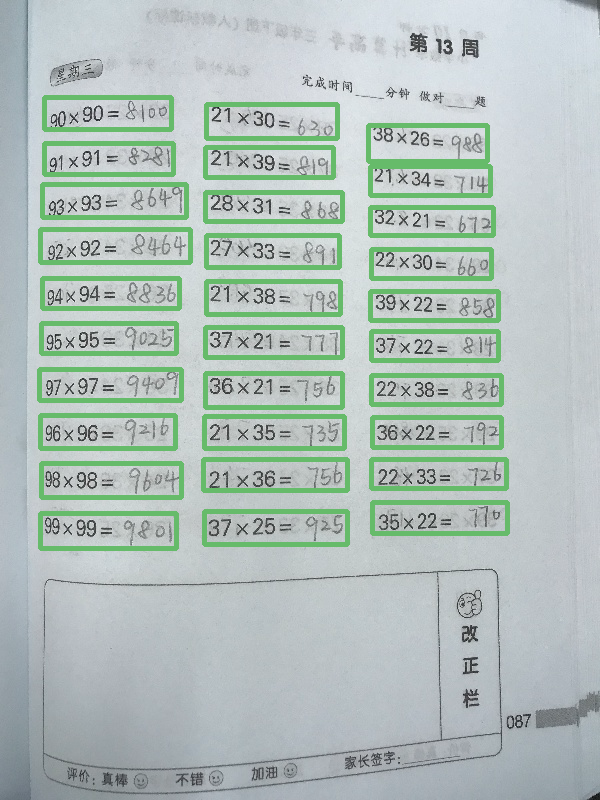 第 13 周
星期三
完成时间____分钟 做对____题
90×90=8100
91×91=8281
93×93=8649
92×92=8464
94×94=8836
95×95=9025
97×97=9409
96×96=9216
98×98=9604
99×99=9801
21×30=630
21×39=819
28×31=868
27×33=891
21×38=798
37×21=777
36×21=756
21×35=735
21×36=756
37×25=925
38×26=988
21×34=714
32×21=672
22×30=660
39×22=858
37×22=814
22×38=836
36×22=792
22×33=726
35×22=770
改正栏
087
评价：真棒 不错 加油 家长签字：